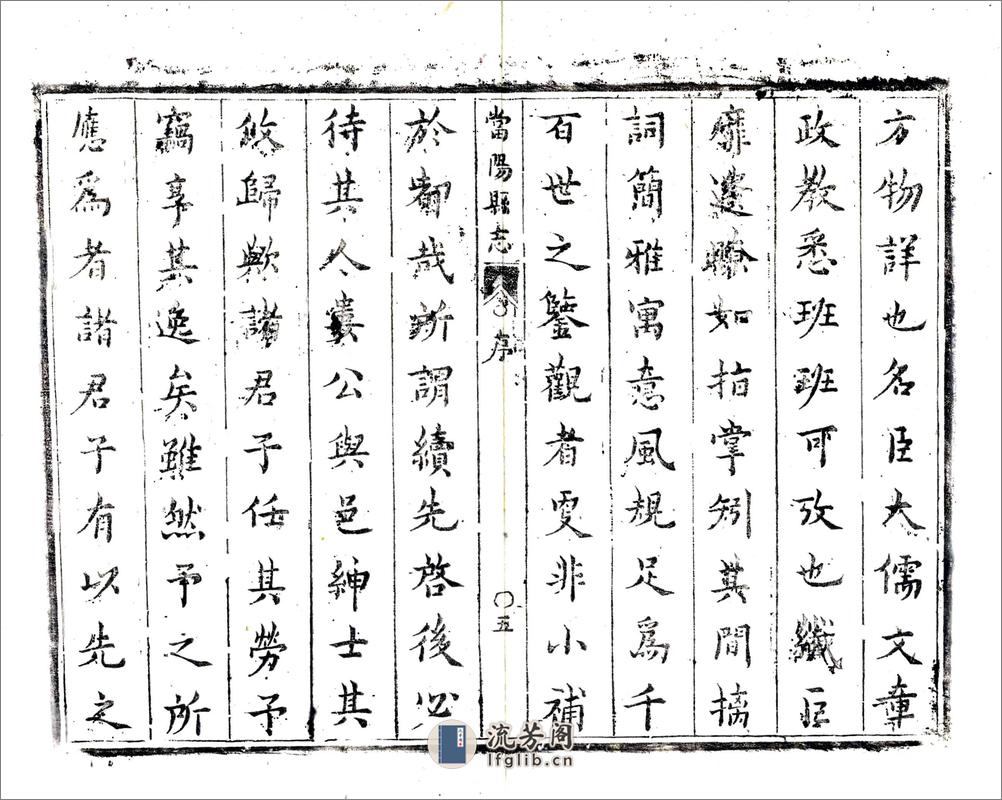 方物詳也名臣大儒文章
政教悉班班可攷也纖巨
靡遺瞭如指掌矧其間摛
詞簡雅寓意風規足爲千
百世之鑒觀者非小補
當陽縣志 序 〇五
於都哉所謂續先啓後必
待其人婁公與邑紳士其
攸歸歟諸君子任其勞予
竊享其逸矣雖然予之所
應爲者諸君子有以先之
流芳阁
lfglib.cn